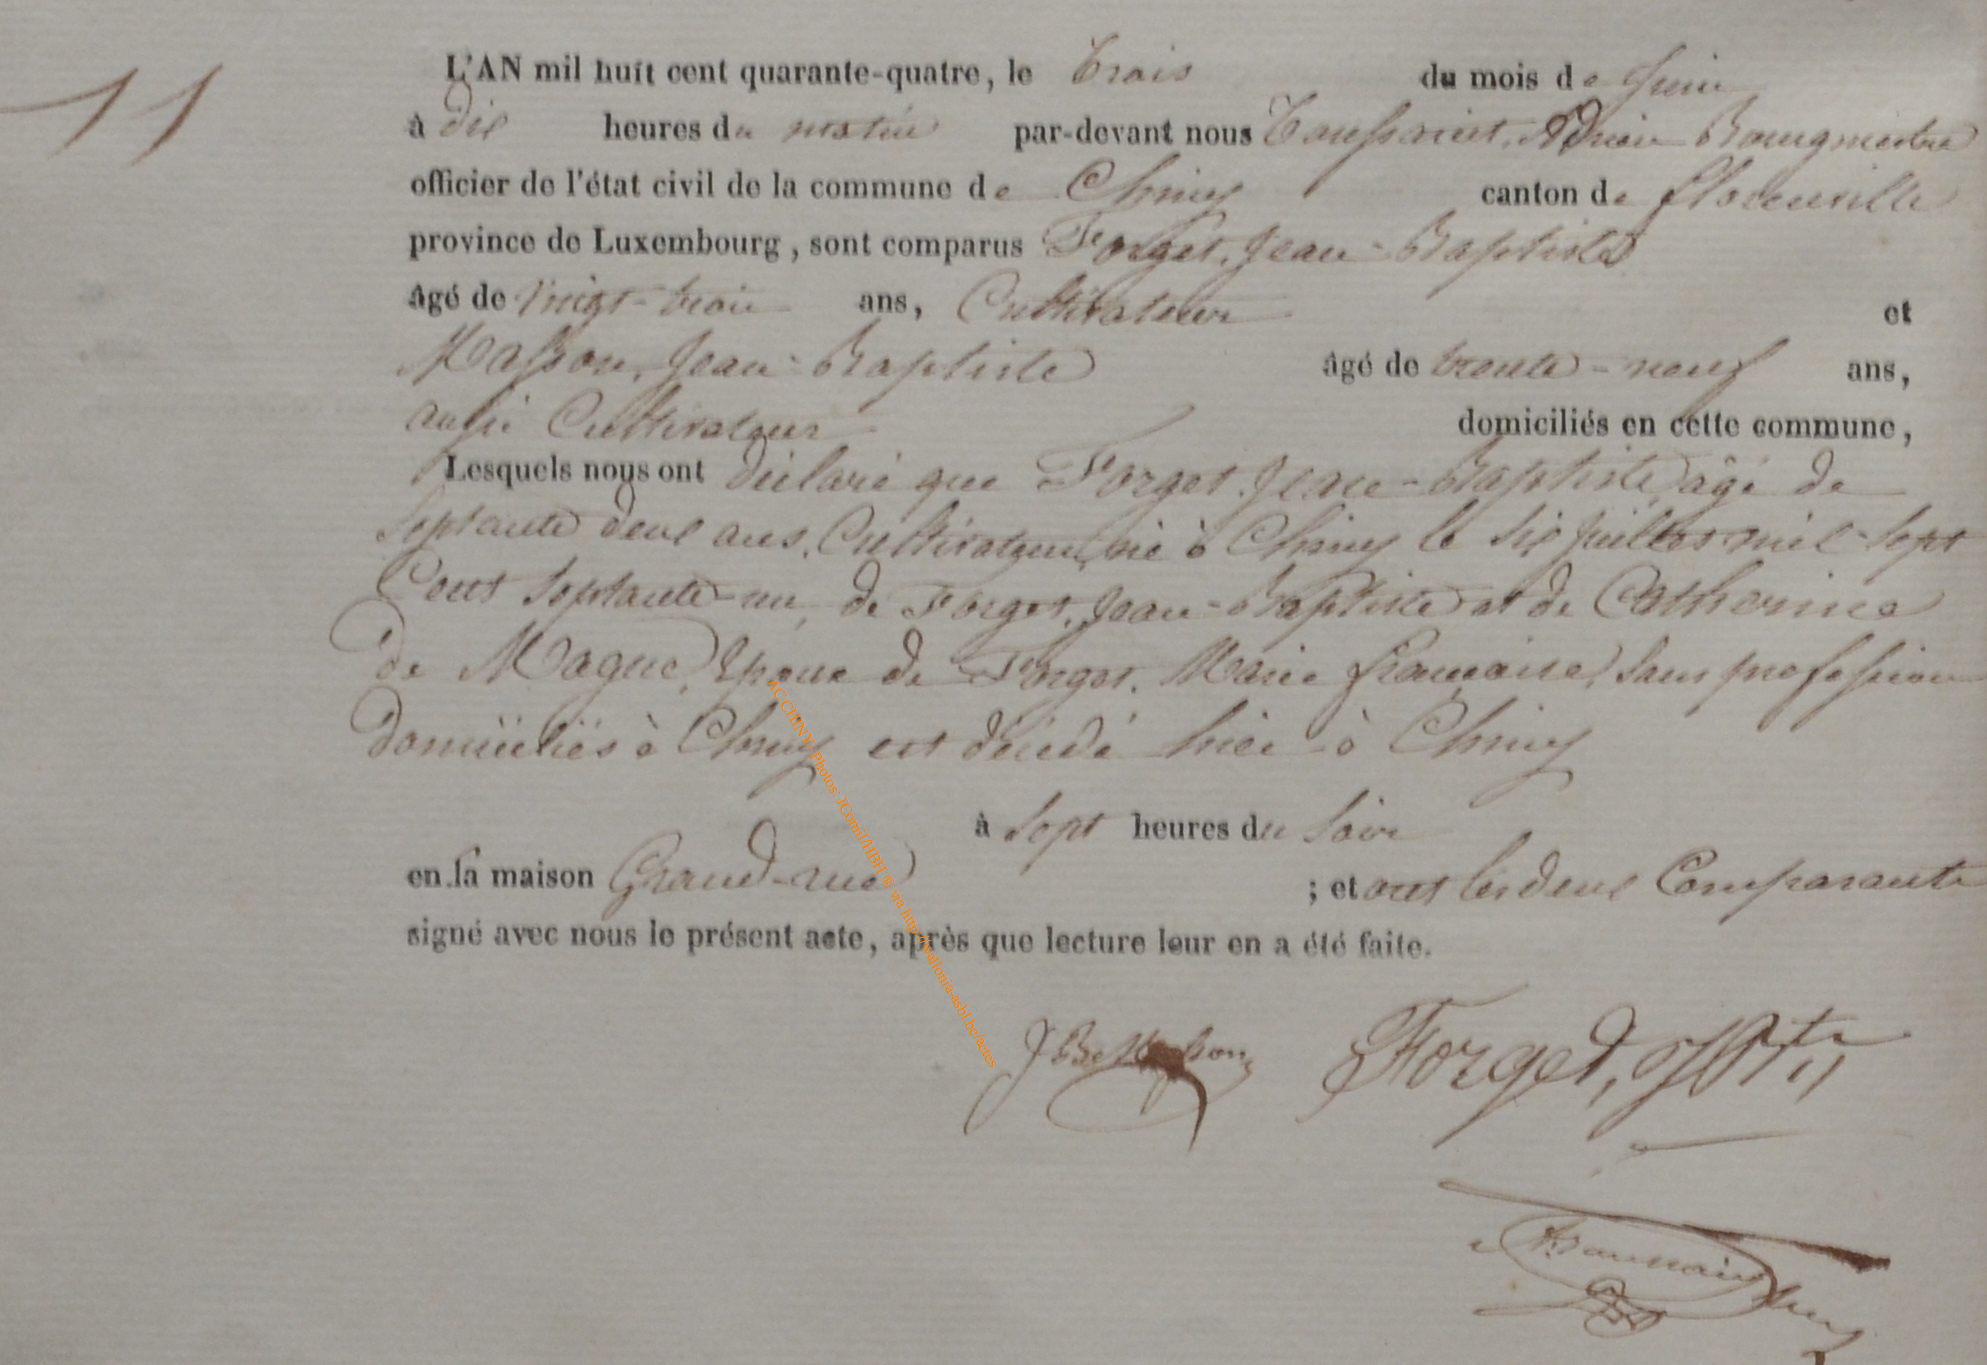 11
L'AN mil huit cent quarante-quatre, le Trois du mois de Juin
à dix heures du matin par-devant nous Toussaint, Adrien Bourgmestre
officier de l'état civil de la commune de Chiny canton de florenville
province de Luxembourg, sont comparus Forget, Jean-Baptiste
âgé de vingt-trois ans, Cultivateur et
Masson, Jean-Baptiste âgé de trente-neuf ans,
aussi Cultivateur domiciliés en cette commune,
Lesquels nous ont déclaré que Forget, Jean-Baptiste, âgé de
Septante deux ans, Cultivateur, né à Chiny le Six juillet mil-Sept
Cent Septante-un, de Forget, Jean-Baptiste et de Catherine
de Mague, Epoux de Forget, Marie françoise, Sans profession
domiciliés à Chiny est décédé hier à Chiny
à Sept heures du Soir
en la maison Grand-rue ; et ont les deux Comparants
signé avec nous le présent acte, après que lecture leur en a été faite.
JBe Masson Forget, JBte
Toussaint